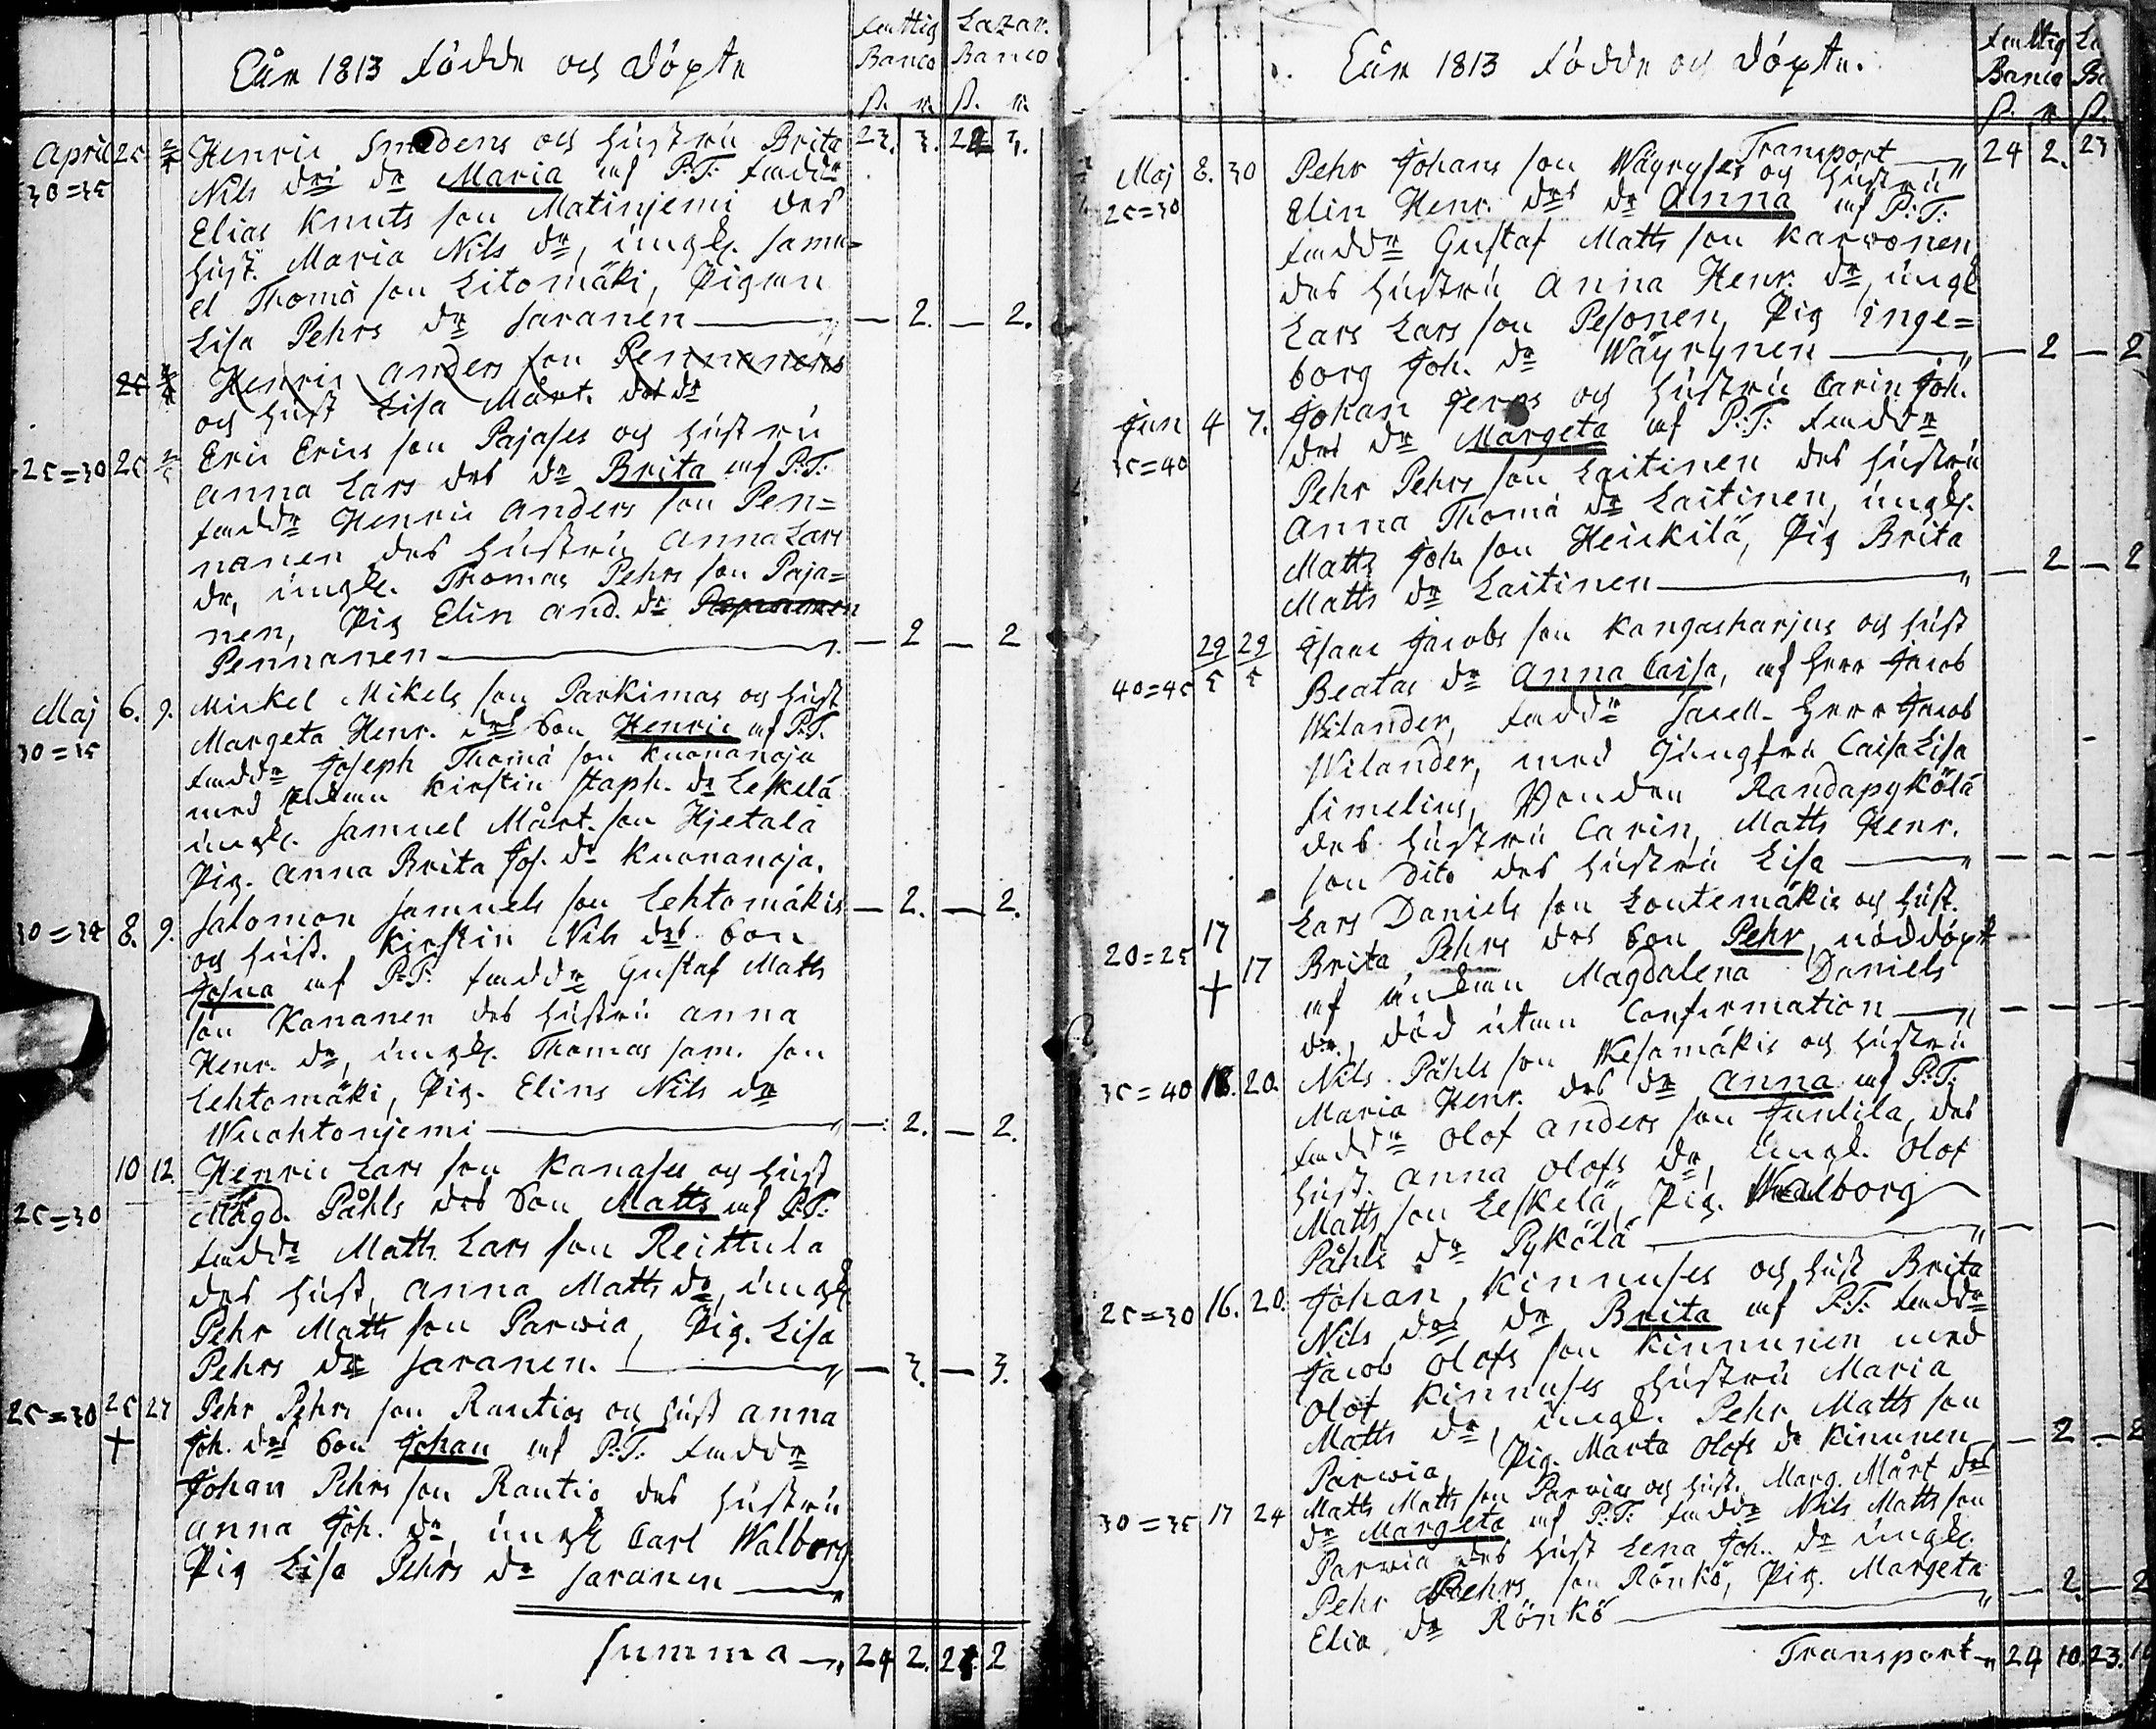 Åår 1813 födde och döpte
Fattig Lazar.
Banco Banco
ß. r. ß. r.
April 25 Henric Smedens och hustru Brita 23. 3. 22 3.
30=35 Nils des dr Maria af P:T: faddr
Elias Knuts son Matinjemi des
hust. Maria Nils dr, ungk. Samu=
el Thomä son Litomäki, Pigan
Lisa Pehrs dr Saranen — 2. — 2.
25 Henric Anders son Pennanens
och hust Lisa Mårt. des dr
Eric Erics son Pajases och hustru
25=30 25 Anna Lars des dr Brita af P:T:
faddr Henric Anders son Pen=
nanen des hustru Anna Lars
dr, ungk. Thomas Pehrs son Paja=
nen, Pig Elin And. dr
Pennanen — 2 — 2
Maj 6. 9. Mickel Mikels son Parkimas och hust
30=35 Margeta Henr. des son Henric af P:T.
faddr Joseph Thomä son Kuonanoja
med Kirstin Staph. dr Leskelä
ungk. Samuel Mårt. son Hjetala
Pig. Anna Brita Joh. dr Kuonanoja. — 2. — 2.
30=35 8. 9. Salomon Samuels son Lehtomäkis
och hust. Kirstin Nils des son
Josua af P:T: faddr Gustaf Matts
son Kananen des hustru Anna
Henr. dr, ungk. Thomas Sam. son
Lehtomäki, Pig. Elins Nils dr
Wuohtonjemi — 2. — 2.
10 12 Henric Lars son Kanases och hust
25=30 Magd. Påhls des son Matts af P:T:
faddr Matts Lars son Reittula
des hust, Anna Matts dr, ungk
Pehr Matts son Parwia, Pig. Lisa
Pehrs dr Saranen. — 3. — 3.
25=30 25 27 Pehr Pehrs son Rautios och hust Anna
+ Joh. des son Johan af P:T: faddr
Johan Pehrs son Rautio des hustru
Anna Joh. dr, ungk Carl Walborg
Pig Lisa Pehrs dr Saranen
Summa 24 2. 2

Åår 1813 födde och döpte.
Fattig
Banco
ß. r. ß.
Transport 24 2. 23
Maj 8. 30 Pehr Johans son Wäyryses och hustru
25=30 Elin Henr. des dr Anna af P:T:
faddr Gustaf Matts son Karwonen
des hustru Anna Henr. dr, ungk
Lars Lars son Pesonen, Pig Inge=
borg Joh. dr Wäyrynen — 2 — 2
Jun 4 7. Johan och hustru Carin Joh.
35=40 des dr Margeta af P:T: faddr
Pehr Pehrs son Laitinen des hustru
Anna Thomä dr Laitinen, ungk.
Matts Joh son Heickilä, Pig Brita
Matts dr Laitinen — 2 — 2
29/5 29/5 Isaac Jacobs son Kangasharjus och hust
40=45 Beatas dr Anna Caisa, af Herr Jacob
Wilander, faddr Sacell. Herr Jacob
Wilander, med Jungfru Caisa Lisa
Simelius, Bonden Randapyköla
des hustru Carin, Matts Henr.
son dito des hustru Lisa — — — —
Lars Daniels son Loutemäkis och hust.
20=25 17 + 17 Brita Pehrs des son Pehr, nöddöpt
af änkan Magdalena Daniels
dr, död utan Confirmation — — — —
35=40 18. 20. Nils Påhls son Kesamäkis och hustru
Maria Henr. des dr Anna af P:T:
faddr Olof Anders son Juntila, des
hust. Anna Olofs dr, ungk. Olof
Matts son Leskelä, Pig. Walborg
Påhls dr Pykölä — —
25=30 16. 20. Johan Kinnuses och hust Brita
Nils des dr Brita af P:T: faddr
Jacob Olofs son Kinnunen med
Olof Kinnuses hustru Maria
Matts dr, ungk. Pehr Matts son
Parwia, Pig. Marta Olofs dr Kinunen — 2 — 2
30=35 17 24 Matts Matts son Parvias och hust. Marg. Mårt des
dr Margeta af P:T: faddr Nils Matts son
Parwia des hust Lena Joh. dr ungk.
Pehr Pehrs son Rönkö, Pig. Margeta
Elia dr Rönkö — 2. — 2
Transport 24 10. 23.